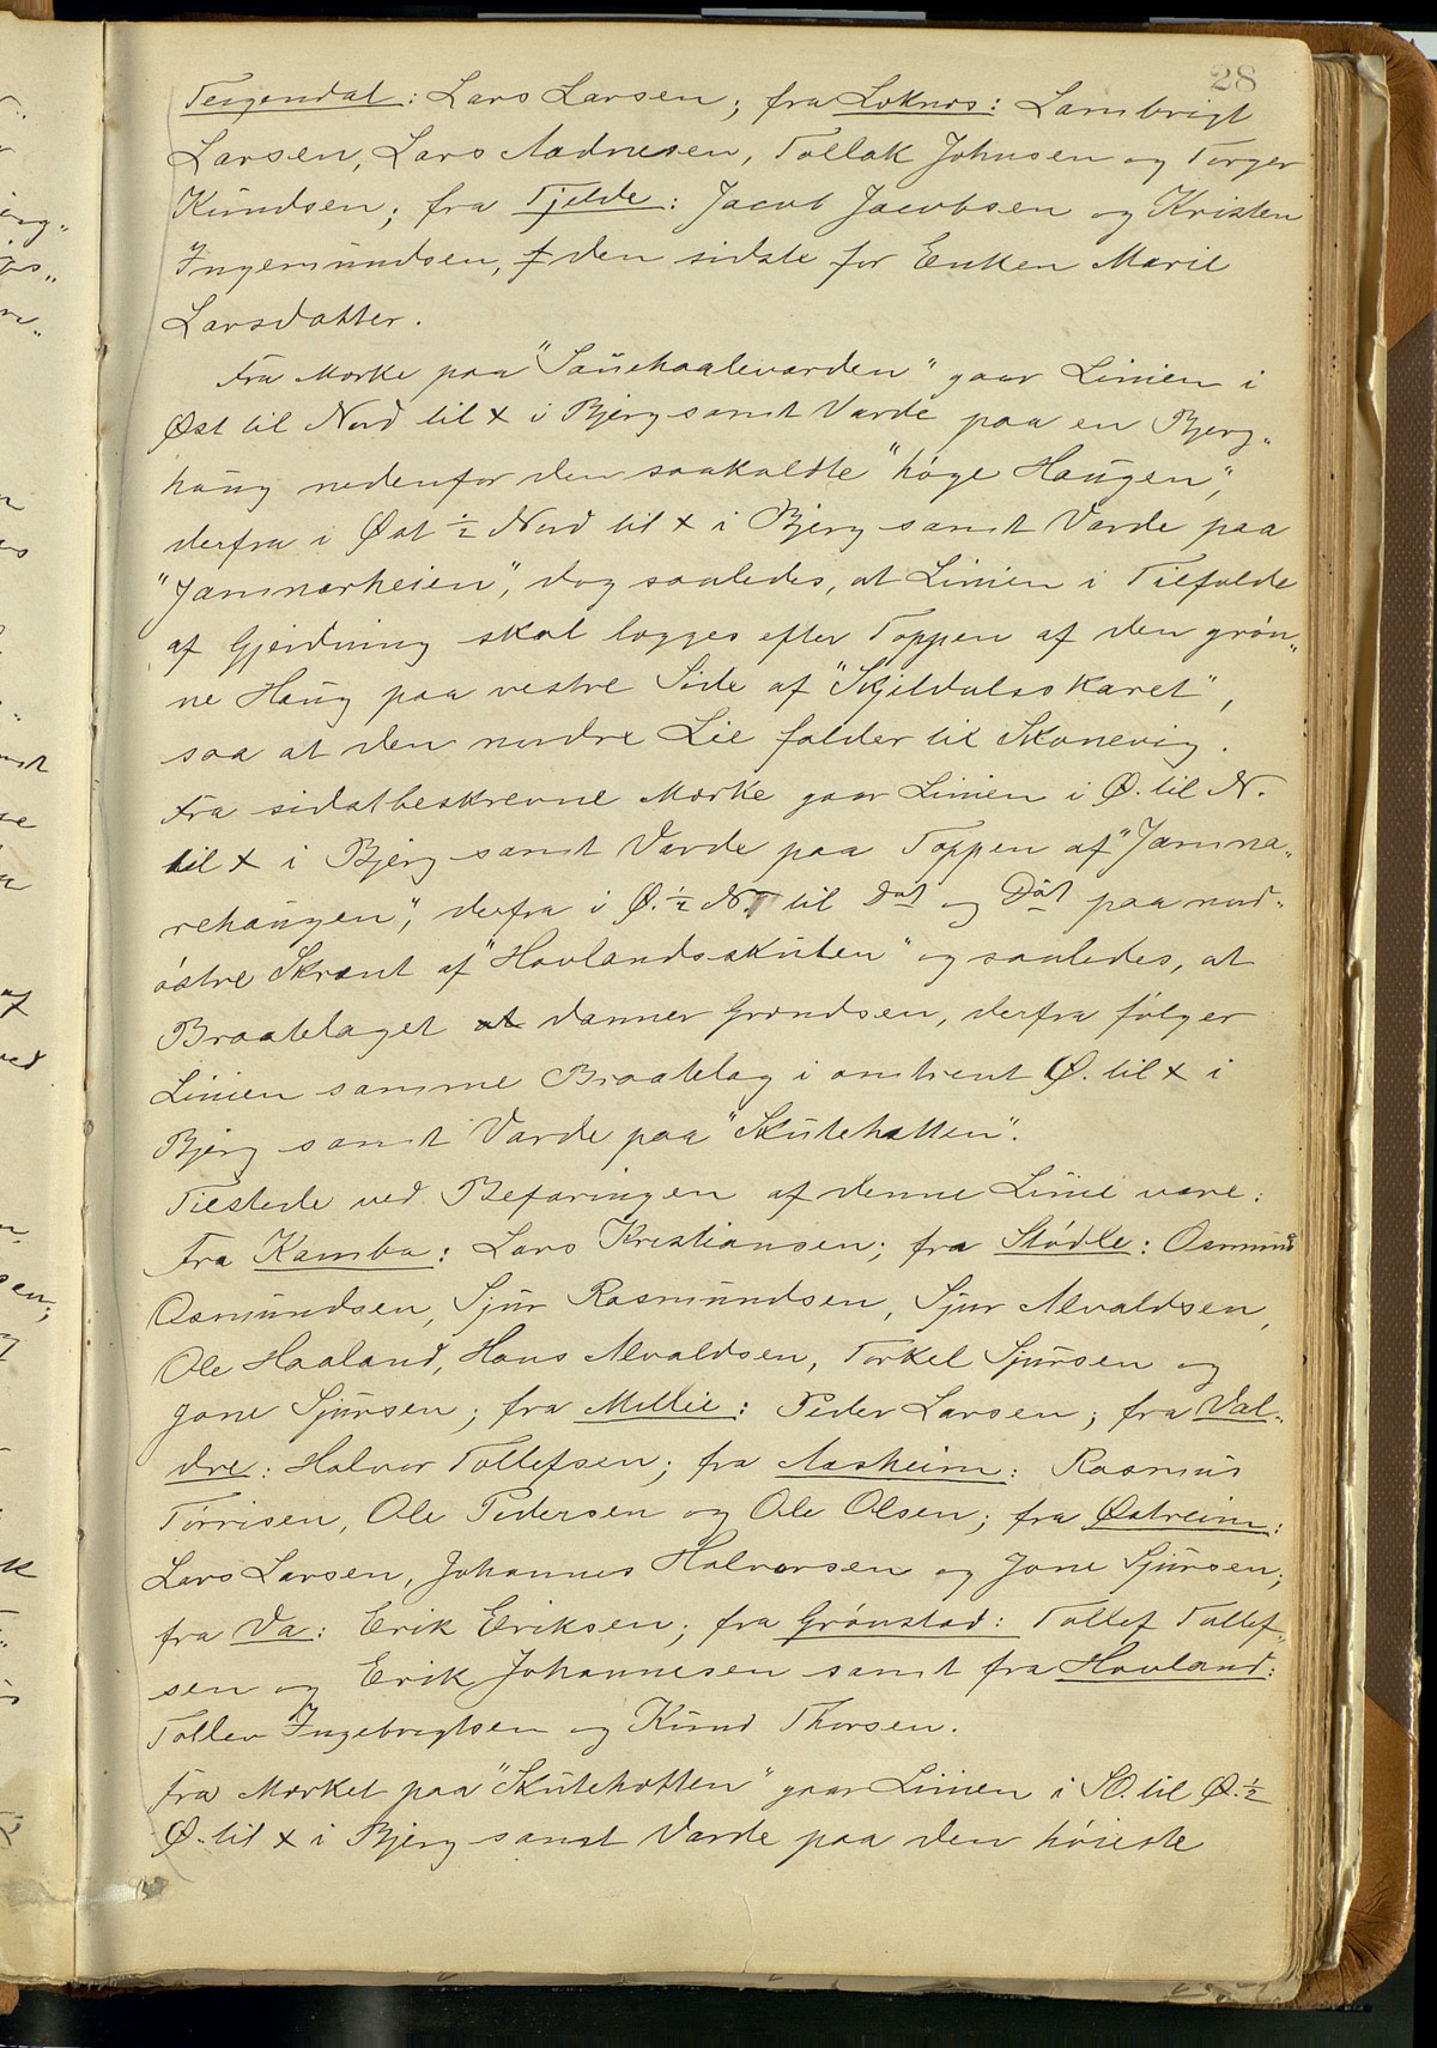 28
Teigendal: Lars Larsen; fra Loknæs: Lambrigt
Larsen, Lars Aadnesen, Tollak Johnsen og Torger
Knudsen; fra Fjelde: Jacob Jacobsen og Kristen
Ingemundsen, f den sidste for Enken Marie
Larsdatter.
Fra Mærke paa "Sauehaalevarden" gaar Linien i
Øst til Nord til x i Bjerg samt Varde paa en Bjerg„
haug nedenfor den saakaldte "høge Haugen",
derfra i Øst ½ Nord til x i Bjerg samt Varde paa
"Jamnarheien", dog saaledes, at Linien i Tilfælde
af Gjerdning skal lægges efter Toppen af den grøn„
ne Haug paa vestre Side af "Skjeldalsskaret",
saa at den nordre Lie falder til Skonevig.
Fra sidstbeskrevne Mærke gaar Linien i Ø. til N.
til x i Bjerg samt Varde paa Toppen af "Jamna„
rehaugen", derfra i Ø. ½ N. til Do og Do paa nord„
østre Skrænt af "Hovlandsskuten" og saaledes, at
Braatelaget at danner Grændsen, derfra følger
Linien samme Braatelag i omtrent Ø. til x i
Bjerg samt Varde paa "Skutehatten".
Tilstede ved Befaringen af denne Linie vare:
Fra Kamba: Lars Kristiansen; fra Stødle: Osmund
Osmundsen, Sjur Rasmundsen, Sjur Alvaldsen,
Ole Haaland, Hans Alvaldsen, Torkel Sjursen og
Jone Sjursen; fra Mellie: Peder Larsen; fra Val„
dre: Halvor Tollefsen; fra Aasheim: Rasmus
Tørrisen, Ole Pedersen og Ole Olsen; fra Østreim:
Lars Larsen, Johannes Halvorsen og Jone Sjursen;
fra Va: Erik Eriksen; fra Grønstad: Tollef Tollef„
sen og Erik Johannesen samt fra Hovland:
Tollev Ingebrigtsen og Knud Thorsen.
Fra Mærket paa "Skutehatten" gaar Linien i SO. til Ø. ½
Ø. til x i Bjerg samt Varde paa den høieste